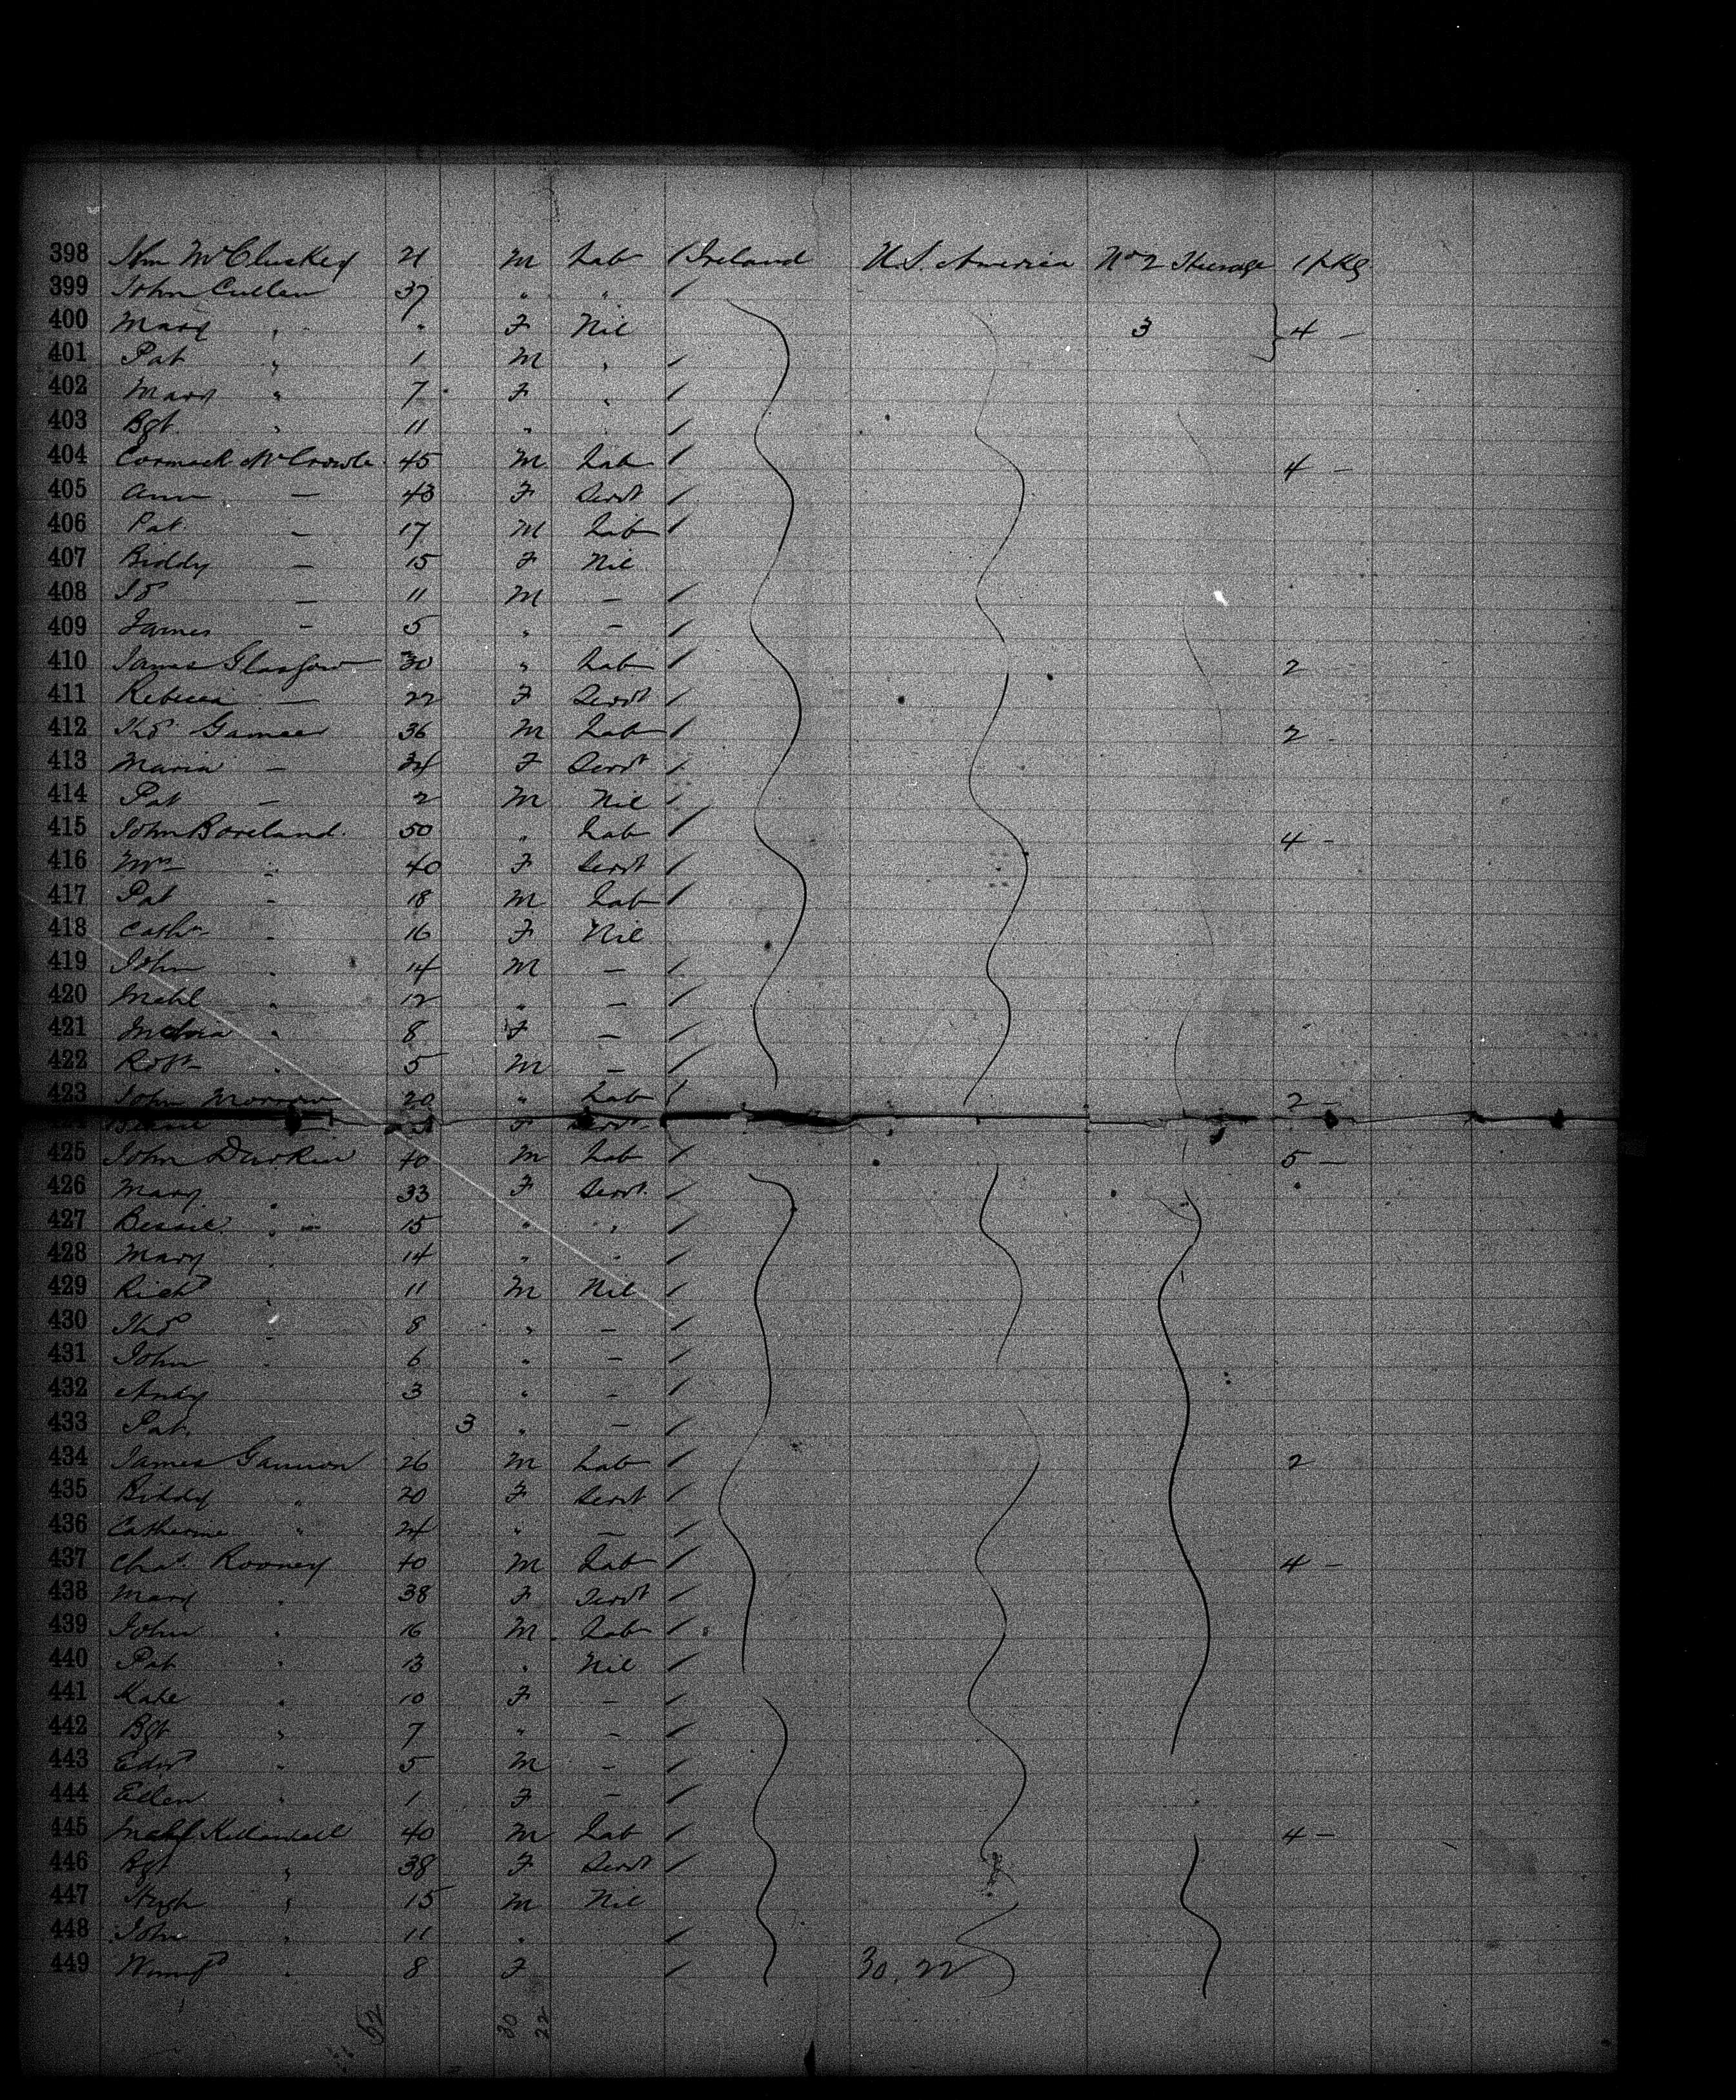 398 Wm McCluskey 21 M Lab / Ireland U.S. America No 2 Steerage 1 pkg
399 John Cullen 37 " " /
400 Mary " " F Nil 3 } 4 —
401 Pat " 1 M " /
402 Mary " 7 F " /
403 Bgt " 11 " " /
404 Cormack 45 M Lab / 4 —
405 Ann — 43 F Servt /
406 Pat — 17 M Lab /
407 Biddy — 15 F Nil
408 — 11 M — /
409 James — 5 " — /
410 James Glasgow 30 " Lab / 2
411 Rebecca — 22 F Servt /
412 Thos 36 M Lab / 2 -
413 Maria — 34 F Servt /
414 Pat — 2 M Nil /
415 John Boreland 50 " Lab / 4 -
416 Mrs " 40 F Servt /
417 Pat " 18 M Lab /
418 Cathn " 16 F Nil
419 John " 14 M — /
420 Michl " 12 " — /
421 " 8 F — /
422 Robt " 5 M — /
423 John Morrow 20 " Lab / 2 —
Bessie F Servt
425 John Durkin 40 M Lab / 5 —
426 Mary " 33 F Servt /
427 Bessie " 15 " " /
428 Mary " 14 " " /
429 Richd " 11 M Nil /
430 Thos " 8 " — /
431 John " 6 " — /
432 Andy 3 " - /
433 Pat 3 " — /
434 James Gannon 26 M Lab / 2
435 Biddy " 20 F Servt /
436 Catherine " 24 " — /
437 Chas Rooney 40 M Lab / 4 —
438 Mary " 38 F Servt /
439 John " 16 M Lab /
440 Pat " 13 " Nil /
441 Kate " 10 F — /
442 Bgt " 7 " — /
443 Edwd " 5 M — /
444 Ellen " 1 F — /
445 40 M Lab / 4 —
446 Bgt " 38 F Servt /
447 Hugh " 15 M Nil
448 John " 11 " /
449 " 8 F / 30. 22
52 30 22